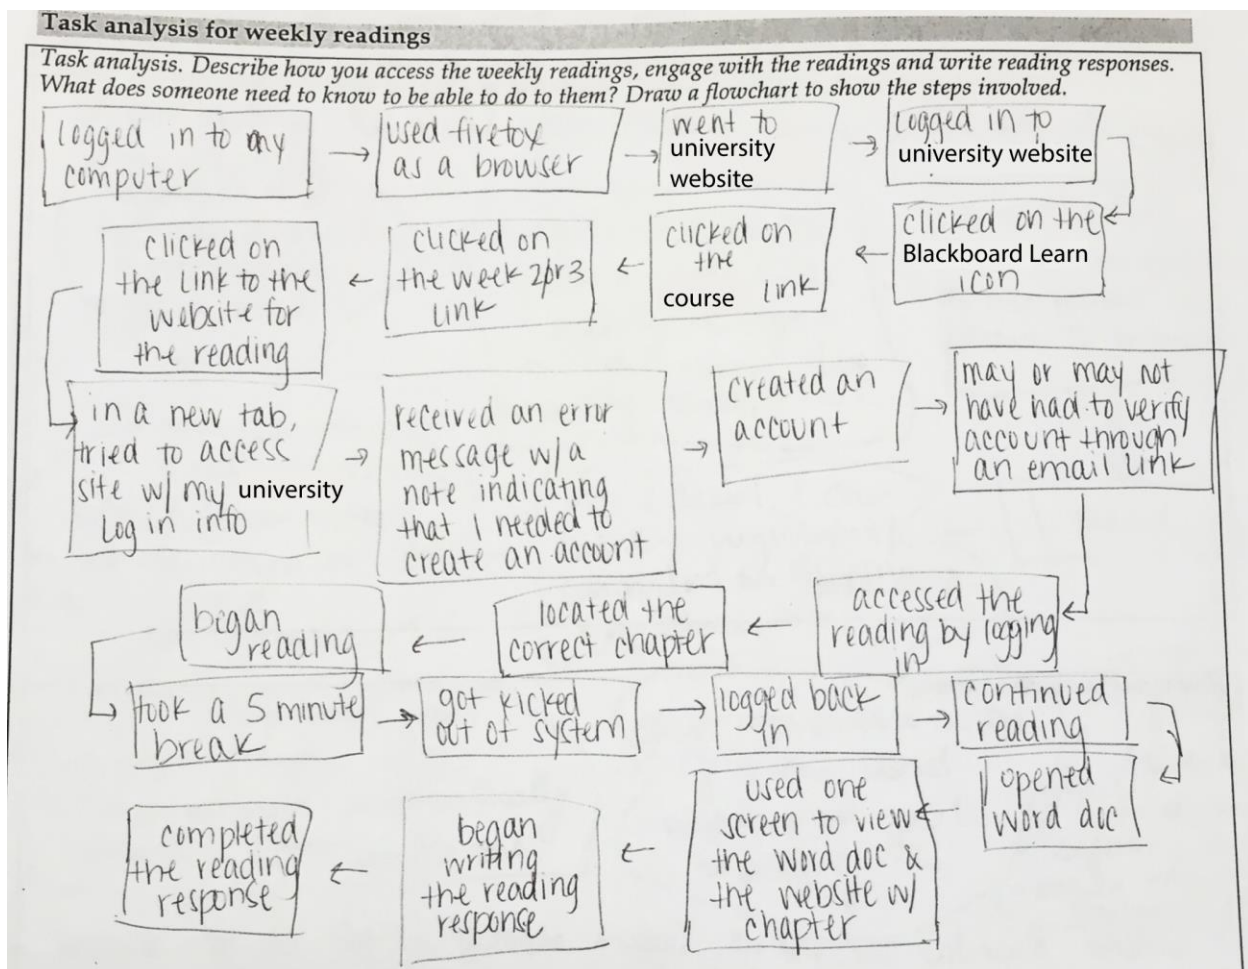 Task analysis for weekly readings
Task analysis. Describe how you access the weekly readings, engage with the readings and write reading responses.
What does someone need to know to be able to do to them? Draw a flowchart to show the steps involved.
logged in to any
computer
used firefox
as a browser
went to
university
website
Logged in to
university website
clicked on the
Blackboard Learn
icon
clicked on
the
course link
clicked on
the week 2 or 3
link
clicked on
the link to the
website for
the reading
in a new tab,
tried to access
site w/ my university
Log in info
received an error
message w/a
note indicating
that I needed to
create an account
created an
account
may or may not
have had to verify
account through
an email link
accessed the
reading by logging
in
located the
correct chapter
began
reading
took a 5 minute
break
got kicked
out of system
logged back
in
continued
reading
opened
word doc
used one
screen to view
the word doc &
the website w/
chapter
began
writing
the reading
response
completed
the reading
response